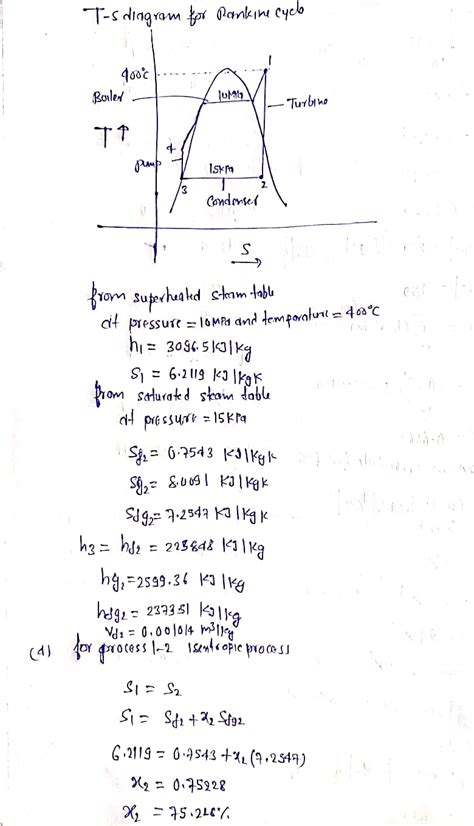 T-s diagram for Rankine cyclo
400°C
1
Boiler
10MPa
Turbine
T↑
4
pump
15KPa
3
2
Condenser
S
from superheated steam table
at pressure = 10MPa and temperature = 400°C
h1 = 3096.5 KJ/kg
S1 = 6.2119 KJ/kgK
from saturated steam table
at pressure = 15KPa
Sf2 = 0.7543 KJ/kgK
Sg2 = 8.0091 KJ/kgK
Sfg2 = 7.2547 KJ/kgK
h3 = hf2 = 225848 KJ/kg
hg2 = 2599.36 KJ/kg
hfg2 = 237351 KJ/kg
Vf2 = 0.001014 m³/kg
(d) for process 1-2 isentropic process
S1 = S2
S1 = Sf2 + x2 Sfg2
6.2119 = 0.7543 + x2 (7.2547)
x2 = 0.75228
x2 = 75.228%